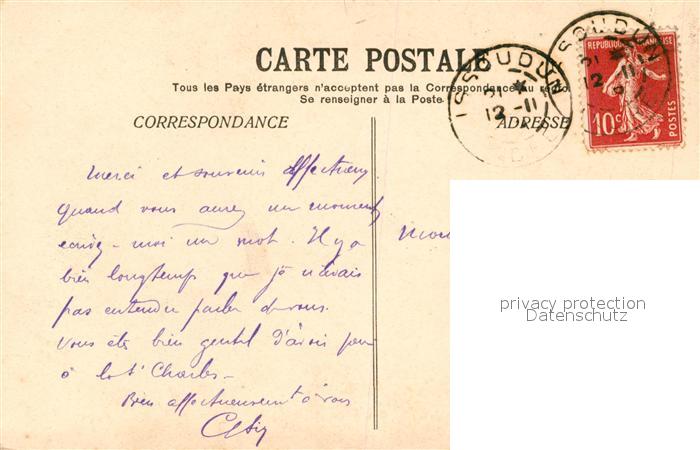 CARTE POSTALE
Tous les Pays étrangers n'acceptent pas la Correspondance au recto
Se renseigner à la Poste
CORRESPONDANCE
ADRESSE
ISSOUDUN
12 -11
ISSOUDUN
12 -11
REPUBLIQUE FRANÇAISE
10c
POSTES
Merci et souvenir affectueux
quand vous aurez un moment
écrivez-moi un mot. Il y a
bien longtemps que je n'avais
pas entendu parler de vous.
Vous êtes bien gentil d'avoir
à St Charles-
Bien affectueusement à vous
privacy protection
Datenschutz